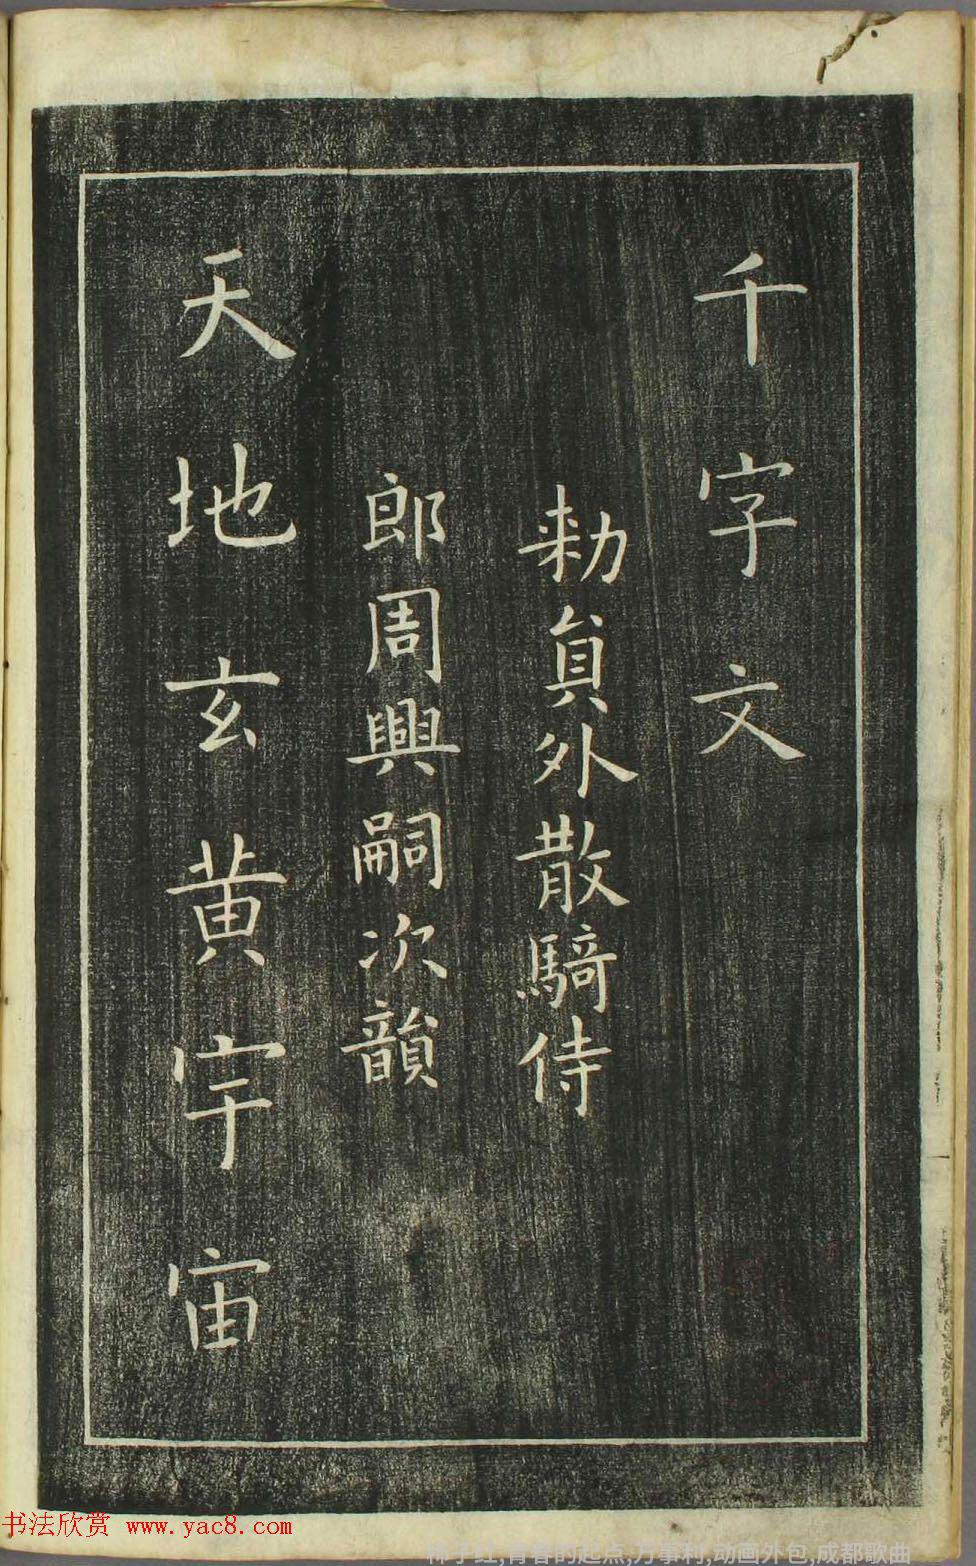 千字文
勑貟外散騎侍
郎周興嗣次韻
天地玄黄宇宙
书法欣赏 www.yac8.com
青春的起点,万事利,动画外包,成都歌曲